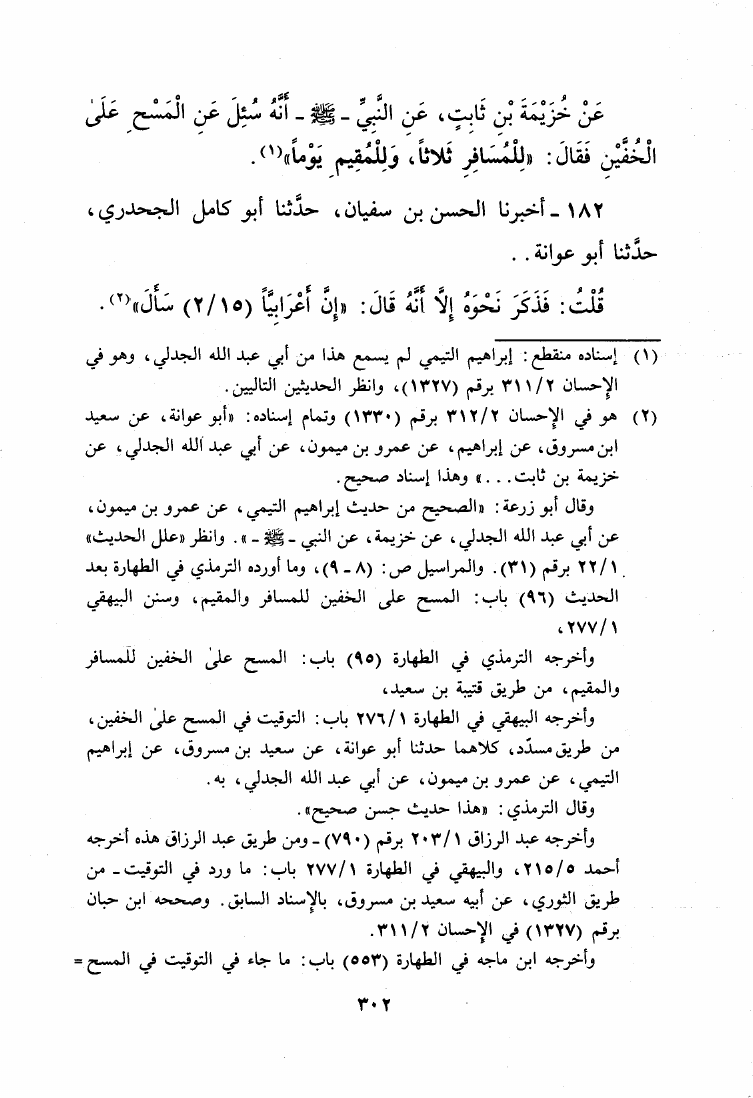 عَنْ خُزَيْمَةَ بْنِ ثَابِتٍ، عَنِ النَّبِيِّ - ﷺ - أَنَّهُ سُئِلَ عَنِ الْمَسْحِ عَلَىٰ
الْخُفَّيْنِ فَقَالَ: «لِلْمُسَافِرِ ثَلاَثاً، وَلِلْمُقِيمِ يَوْماً»(١).
١٨٢ - أخبرنا الحسن بن سفيان، حدَّثنا أبو كامل الجحدري،
حدَّثنا أبو عوانة..
قُلْتُ: فَذَكَرَ نَحْوَهُ إِلاَّ أَنَّهُ قَالَ: «إِنَّ أَعْرَابِيّاً (٢/١٥) سَأَلَ»(٢).
(١) إسناده منقطع: إبراهيم التيمي لم يسمع هذا من أبي عبد الله الجدلي، وهو في
الإحسان ٣١١/٢ برقم (١٣٢٧)، وانظر الحديثين التاليين.
(٢) هو في الإحسان ٣١٢/٢ برقم (١٣٣٠) وتمام إسناده: «أبو عوانة، عن سعيد
ابن مسروق، عن إبراهيم، عن عمرو بن ميمون، عن أبي عبد الله الجدلي، عن
خزيمة بن ثابت...» وهذا إسناد صحيح.
وقال أبو زرعة: «الصحيح من حديث إبراهيم التيمي، عن عمرو بن ميمون،
عن أبي عبد الله الجدلي، عن خزيمة، عن النبي - ﷺ -». وانظر «علل الحديث»
٢٢/١ برقم (٣١). والمراسيل ص: (٨ - ٩)، وما أورده الترمذي في الطهارة بعد
الحديث (٩٦) باب: المسح على الخفين للمسافر والمقيم، وسنن البيهقي
٢٧٧/١،
وأخرجه الترمذي في الطهارة (٩٥) باب: المسح علىٰ الخفين للمسافر
والمقيم، من طريق قتيبة بن سعيد،
وأخرجه البيهقي في الطهارة ٢٧٦/١ باب: التوقيت في المسح علىٰ الخفين،
من طريق مسدّد، كلاهما حدثنا أبو عوانة، عن سعيد بن مسروق، عن إبراهيم
التيمي، عن عمرو بن ميمون، عن أبي عبد الله الجدلي، به.
وقال الترمذي: «هذا حديث حسن صحيح».
وأخرجه عبد الرزاق ٢٠٣/١ برقم (٧٩٠) - ومن طريق عبد الرزاق هذه أخرجه
أحمد ٢١٥/٥، والبيهقي في الطهارة ٢٧٧/١ باب: ما ورد في التوقيت - من
طريق الثوري، عن أبيه سعيد بن مسروق، بالإسناد السابق. وصححه ابن حبان
برقم (١٣٢٧) في الإحسان ٣١١/٢.
وأخرجه ابن ماجه في الطهارة (٥٥٣) باب: ما جاء في التوقيت في المسح =
٣٠٢